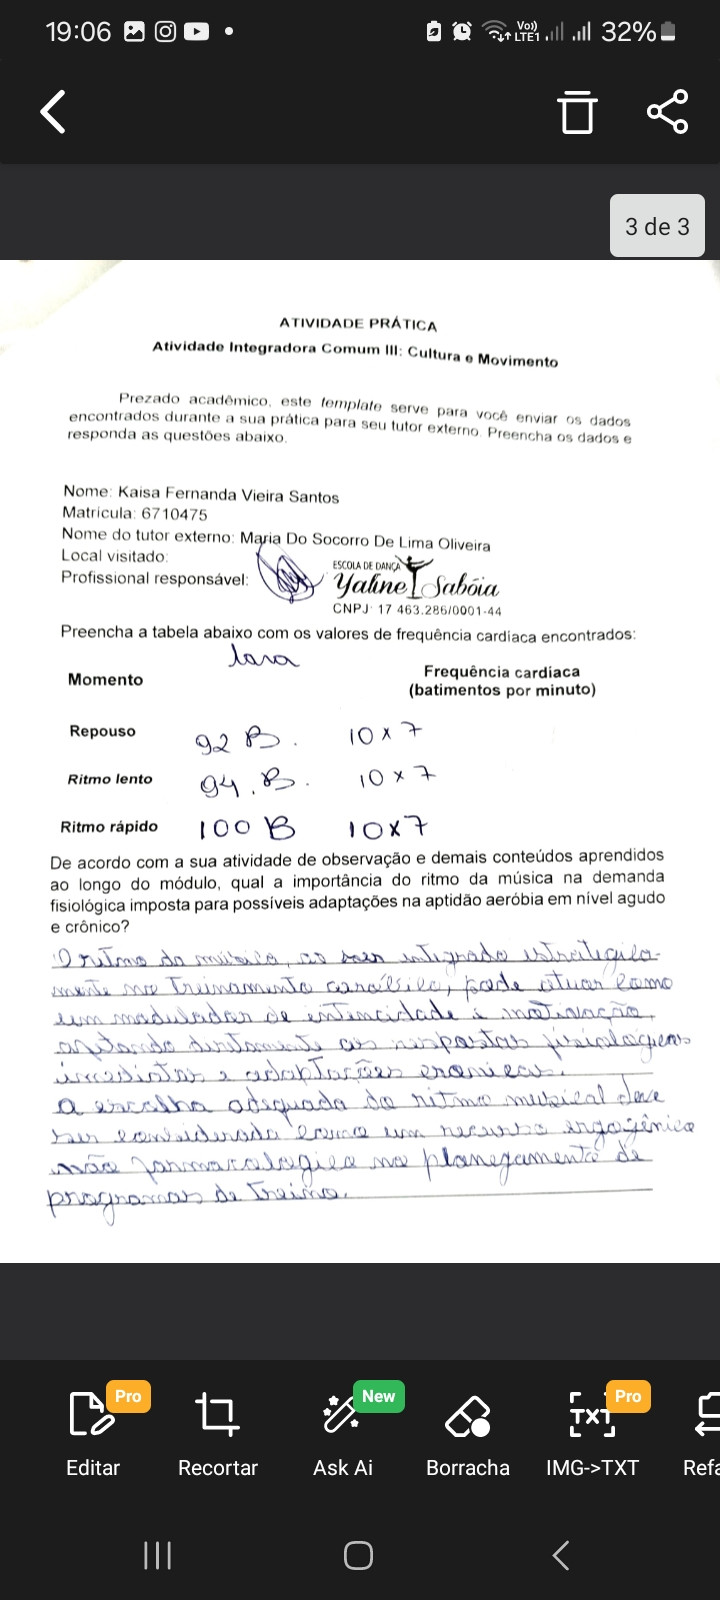 19:06
Vo)) LTE1 32%
3 de 3
ATIVIDADE PRÁTICA
Atividade Integradora Comum III: Cultura e Movimento
Prezado acadêmico, este template serve para você enviar os dados
encontrados durante a sua prática para seu tutor externo. Preencha os dados e
responda as questões abaixo.
Nome: Kaisa Fernanda Vieira Santos
Matrícula: 6710475
Nome do tutor externo: Maria Do Socorro De Lima Oliveira
Local visitado:
ESCOLA DE DANÇA
Profissional responsável:
Yaline Sabóia
CNPJ: 17 463.286/0001-44
Preencha a tabela abaixo com os valores de frequência cardíaca encontrados:
Iara
Momento
Frequência cardíaca
(batimentos por minuto)
Repouso 92 B. 10 x 7
Ritmo lento 94.B. 10 x 7
Ritmo rápido 100 B 10x7
De acordo com a sua atividade de observação e demais conteúdos aprendidos
ao longo do módulo, qual a importância do ritmo da música na demanda
fisiológica imposta para possíveis adaptações na aptidão aeróbia em nível agudo
e crônico?
O ritmo da música, ao ser integrado estrategica-
mente no treinamento pode atuar como
um modulador de intencidade e motivação,
diretamente as respostas fisiologicas
imediatas e adaptações cronicas.
A escolha adequada do ritmo musical deve
ser considerada como um recurso ergogênico
não farmacologico no planejamento de
programas de treino.
Pro
New
Pro
TXT
Editar
Recortar
Ask Ai
Borracha
IMG->TXT
Refa